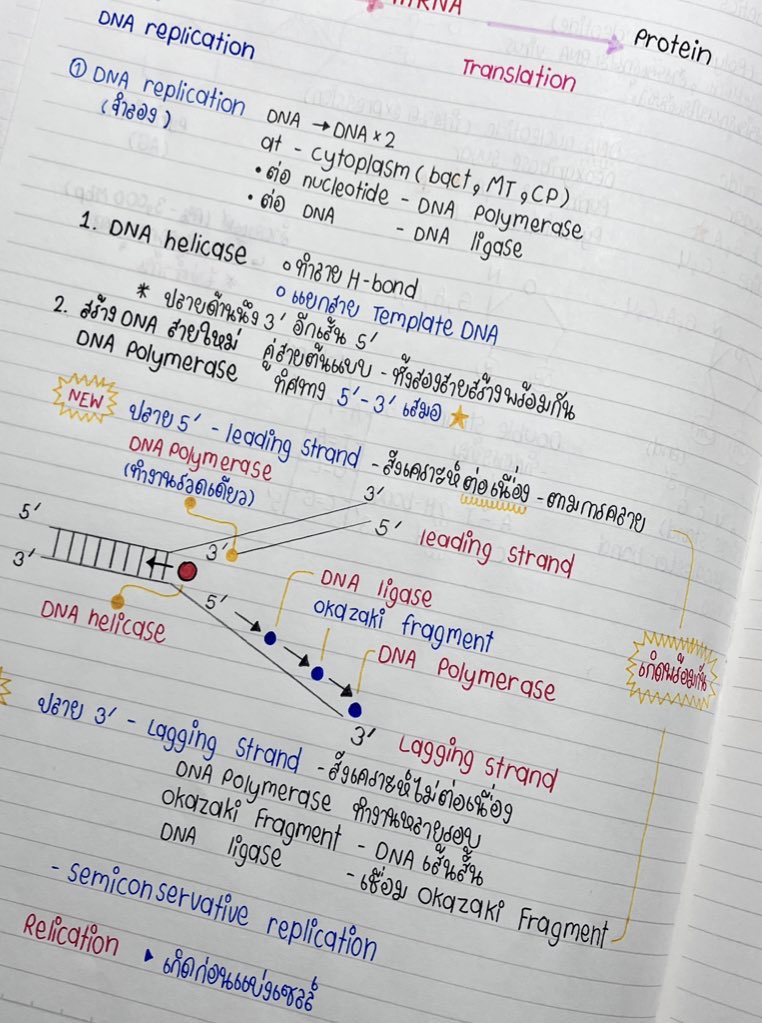 mRNA
Protein
Translation
DNA replication
① DNA replication
(จำลอง)
DNA → DNA × 2
at - cytoplasm (bact, MT, CP)
• ต่อ nucleotide - DNA polymerase
• ต่อ DNA - DNA ligase
1. DNA helicase ० ทำลาย H-bond
० แยกสาย Template DNA
* ปลายด้านนึง 3' อีกเส้น 5'
2. สร้าง DNA สายใหม่ คู่สายต้นแบบ - ทั้งสองสายสร้างพร้อมกัน
DNA Polymerase ทิศทาง 5'-3' เสมอ ★
NEW
ปลาย 5' - leading strand - สังเคราะห์ ต่อเนื่อง - ตามการคลาย
DNA Polymerase
(ทำงานรวดเดียว)
3'
5'
5'
3'
leading strand
3'
DNA helicase
5'
DNA ligase
okazaki fragment
DNA Polymerase
เกิดพร้อมกัน
3'
Lagging strand
ปลาย 3' - Lagging strand - สังเคราะห์ไม่ต่อเนื่อง
DNA Polymerase ทำงานหลายรอบ
Okazaki Fragment - DNA เส้นสั้น
DNA ligase - เชื่อม Okazaki Fragment
- semiconservative replication
Relication ▸ เกิดก่อนแบ่งเซลล์